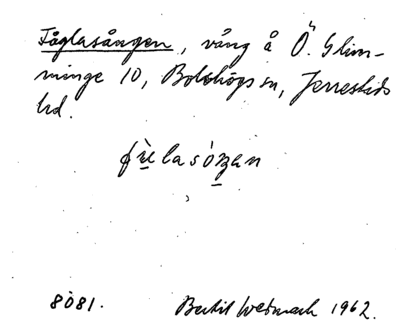 Fåglasången, vång å Ö. Glim-
minge 10, Bolshögs sn, Jerrestads
hd.
fùlasóŋan
8081. Bertil Wetmark 1962.